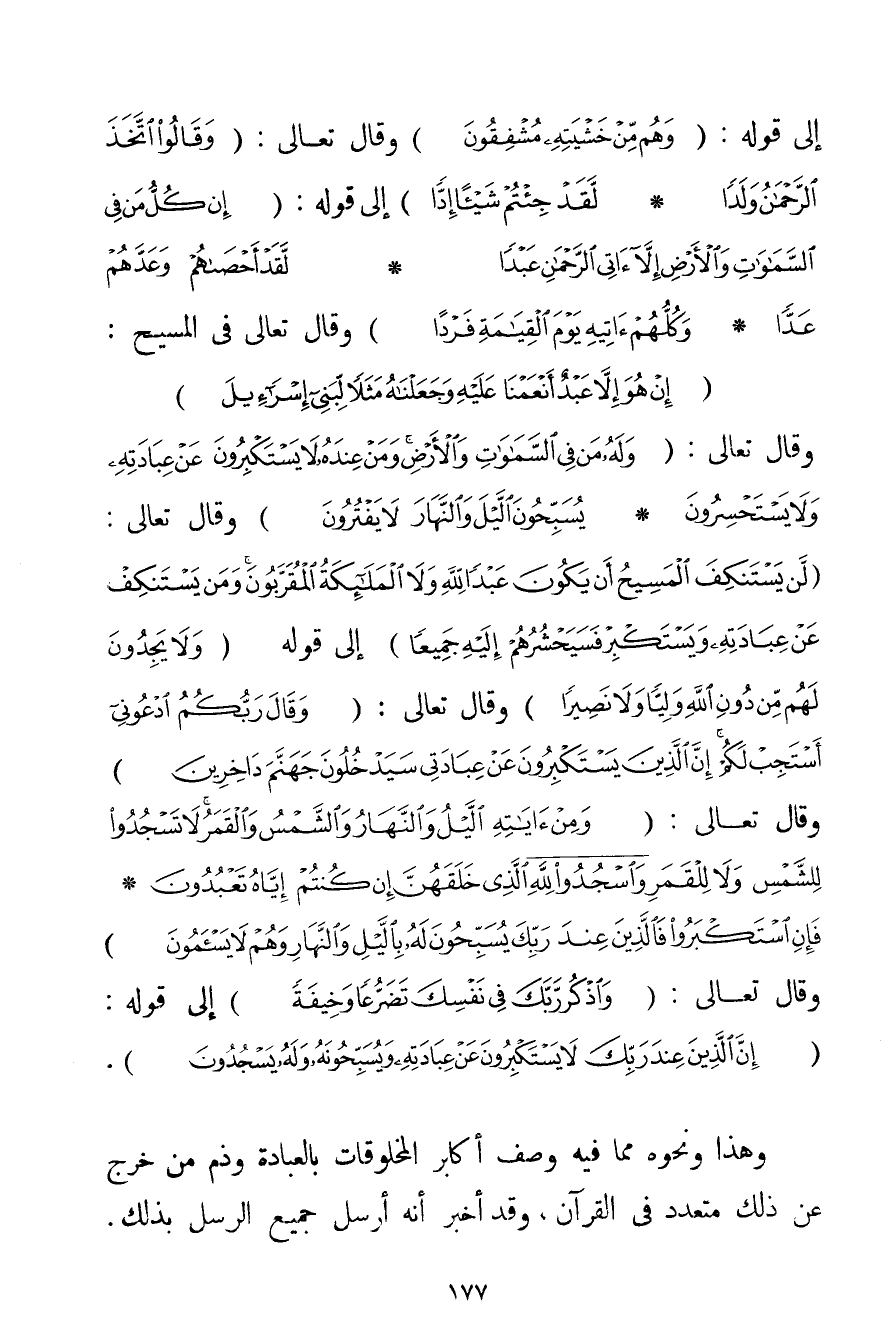 إلى قوله : ( وَهُم مِّنْ خَشْيَتِهِۦ مُشْفِقُونَ ) وقال تعـالى : ( وَقَالُواْ ٱتَّخَذَ
ٱلرَّحْمَٰنُ وَلَدًا * لَّقَدْ جِئْتُمْ شَيْـًٔا إِدًّا ) إلى قوله : ( إِن كُلُّ مَن فِى
ٱلسَّمَٰوَٰتِ وَٱلْأَرْضِ إِلَّآ ءَاتِى ٱلرَّحْمَٰنِ عَبْدًا * لَّقَدْ أَحْصَىٰهُمْ وَعَدَّهُمْ
عَدًّا * وَكُلُّهُمْ ءَاتِيهِ يَوْمَ ٱلْقِيَٰمَةِ فَرْدًا ) وقال تعالى فى المسيح :
( إِنْ هُوَ إِلَّا عَبْدٌ أَنْعَمْنَا عَلَيْهِ وَجَعَلْنَٰهُ مَثَلًا لِّبَنِىٓ إِسْرَٰٓءِيلَ )
وقال تعالى : ( وَلَهُۥ مَن فِى ٱلسَّمَٰوَٰتِ وَٱلْأَرْضِ ۚ وَمَنْ عِندَهُۥ لَا يَسْتَكْبِرُونَ عَنْ عِبَادَتِهِۦ
وَلَا يَسْتَحْسِرُونَ * يُسَبِّحُونَ ٱلَّيْلَ وَٱلنَّهَارَ لَا يَفْتُرُونَ ) وقال تعالى :
( لَّن يَسْتَنكِفَ ٱلْمَسِيحُ أَن يَكُونَ عَبْدًا لِّلَّهِ وَلَا ٱلْمَلَٰٓئِكَةُ ٱلْمُقَرَّبُونَ ۚ وَمَن يَسْتَنكِفْ
عَنْ عِبَادَتِهِۦ وَيَسْتَكْبِرْ فَسَيَحْشُرُهُمْ إِلَيْهِ جَمِيعًا ) إلى قوله ( وَلَا يَجِدُونَ
لَهُم مِّن دُونِ ٱللَّهِ وَلِيًّا وَلَا نَصِيرًا ) وقال تعالى : ( وَقَالَ رَبُّكُمُ ٱدْعُونِىٓ
أَسْتَجِبْ لَكُمْ ۚ إِنَّ ٱلَّذِينَ يَسْتَكْبِرُونَ عَنْ عِبَادَتِى سَيَدْخُلُونَ جَهَنَّمَ دَاخِرِينَ )
وقال تعـــالى : ( وَمِنْ ءَايَٰتِهِ ٱلَّيْلُ وَٱلنَّهَارُ وَٱلشَّمْسُ وَٱلْقَمَرُ ۚ لَا تَسْجُدُواْ
لِلشَّمْسِ وَلَا لِلْقَمَرِ وَٱسْجُدُواْ لِلَّهِ ٱلَّذِى خَلَقَهُنَّ إِن كُنتُمْ إِيَّاهُ تَعْبُدُونَ *
فَإِنِ ٱسْتَكْبَرُواْ فَٱلَّذِينَ عِندَ رَبِّكَ يُسَبِّحُونَ لَهُۥ بِٱلَّيْلِ وَٱلنَّهَارِ وَهُمْ لَا يَسْـَٔمُونَ )
وقال تعــالى : ( وَٱذْكُر رَّبَّكَ فِى نَفْسِكَ تَضَرُّعًا وَخِيفَةً ) إلى قوله :
( إِنَّ ٱلَّذِينَ عِندَ رَبِّكَ لَا يَسْتَكْبِرُونَ عَنْ عِبَادَتِهِۦ وَيُسَبِّحُونَهُۥ وَلَهُۥ يَسْجُدُونَ ) .
وهذا ونحوه مما فيه وصف أكابر المخلوقات بالعبادة وذم من خرج
عن ذلك متعدد فى القرآن ، وقد أخبر أنه أرسل جميع الرسل بذلك .
١٧٧